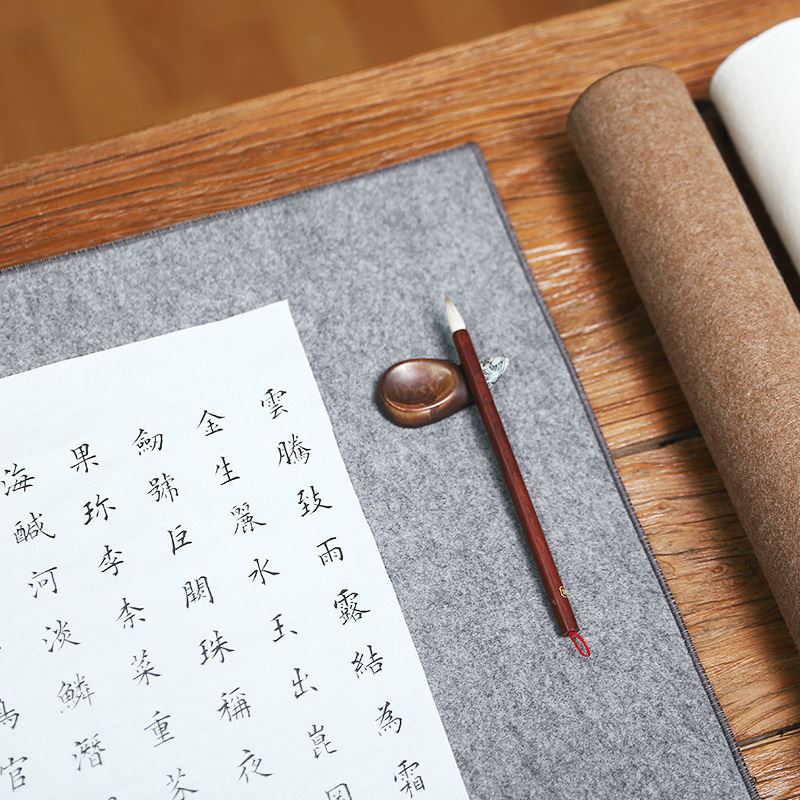 雲騰致雨露結為霜
金生麗水玉出崑岡
劒號巨闕珠稱夜
果珎李柰菜重芥
海鹹河淡鱗潛
鳥官